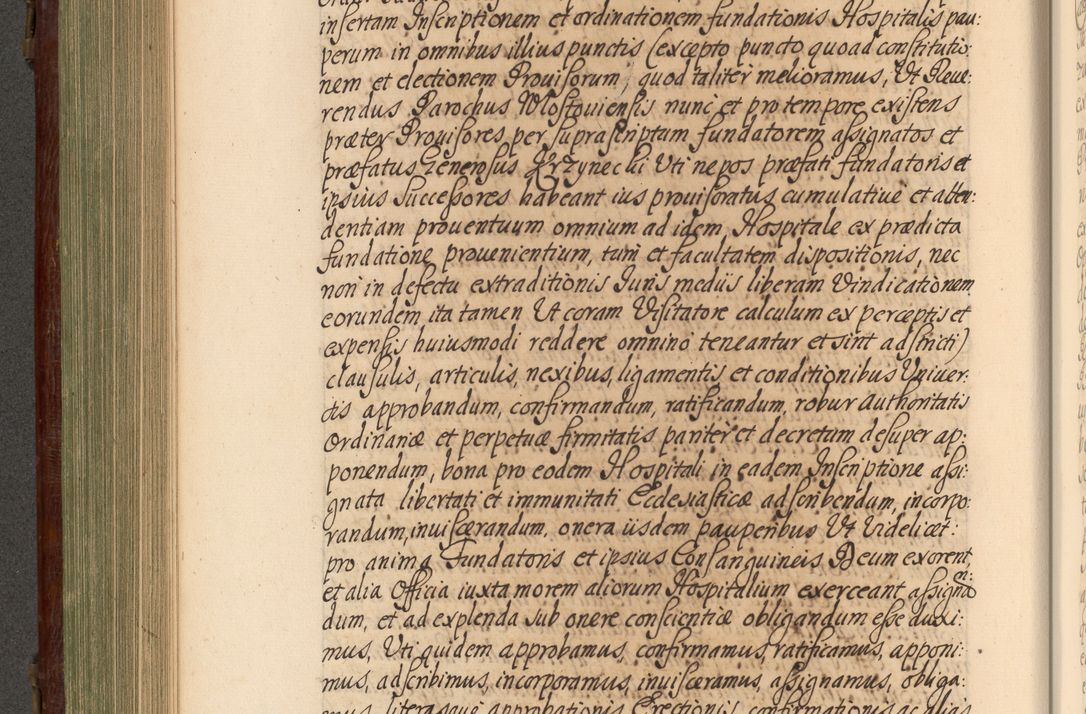 insertam Inscriptionem et ordinationem fundationis Hospitalis pau:
perum in omnibus illius punctis (excepto puncto quoad constitutio:
nem et electionem Prouisorum, quod taliter melioramus, Ut Reue:
rendus Parochus Mostouiensis nunc et pro tempore existens
præter Prouisores per suprascriptum fundatorem assignatos et
præfatus Generosus Krzynecki Uti nepos præfati fundatoris et
ipsius Successores habeant ius prouisoratus cumulatiuè et atten:
dentiam prouentuum omnium ad idem Hospitale ex prædicta
fundatione prouenientium, tum et facultatem dispositionis, nec
non in defectu extraditionis Iuris medijs liberam Vindicationem
eorundem, ita tamen Ut coram Visitatore calculum ex perceptis et
expensis huiusmodi reddere omninò teneantur et sint adstricti)
clausulis, articulis, nexibus, ligamentis et conditionibus Vniuer:
sis approbandum, confirmandum, ratificandum, robur Authoritatis
Ordinariæ et perpetuæ firmitatis pariter et decretum desuper ap:
ponendum, bona pro eodem Hospitali in eadem Inscriptione assi:
gnata libertati et immunitati Ecclesiasticæ adscribendum, incorpo:
randum, inuiscerandum, onera ijsdem pauperibus Ut Videlicet:
pro anima Fundatoris et ipsius Consanguineis Deum exorent,
et alia Officia iuxta morem aliorum Hospitalium exerceant assignan:
dum, et ad explenda sub onere conscientiæ obligandum esse duxi:
mus, Uti quidem approbamus, confirmamus, ratificamus, apponi:
mus, adscribimus, incorporamus, inuisceramus, assignamus, obliga:
mus, literasque approbationis Erectionis confirmationis ac alias